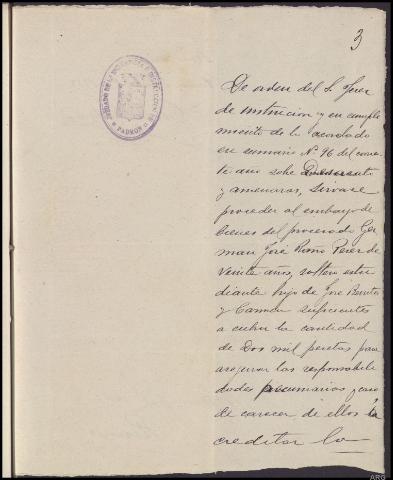 3
JUZGADO DE INSTRUCCION
PADRON
De orden del Sr. Juez
de instrucion y en cumpli
miento de lo acordado
en sumario Nº 96 del corrien
te año sobre
y amenazas, servase
proceder al embargo de
bienes del procesado Ger
man José Rumo Perez de
veinte años, soltero estu
diante hijo de José Benito
y Carmen suficientes
a cubrir la cantidad
de Dos mil pesetas para
asegurar las responsabili
dades pecuniarias y caso
de carecer de ellos
creditar lo
ARG